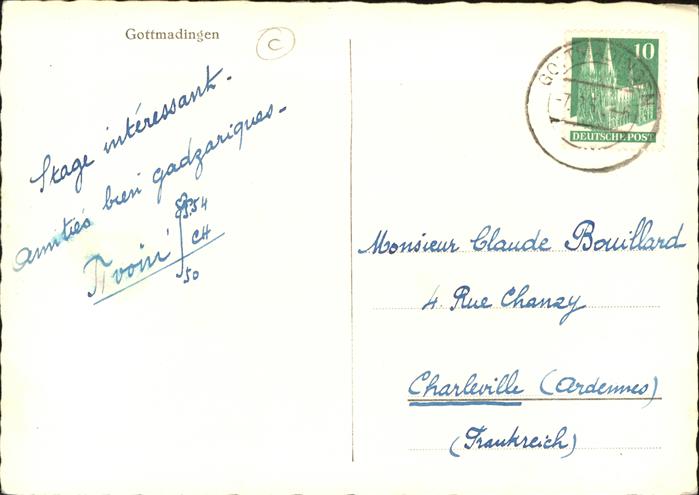 Gottmadingen
C
Stage intéressant.
Amitiés bien gadzariques.
54
CH
50
10
DEUTSCHE POST
Monsieur Claude Bouillard
4 Rue Chanzy
Charleville (Ardennes)
(Frankreich)